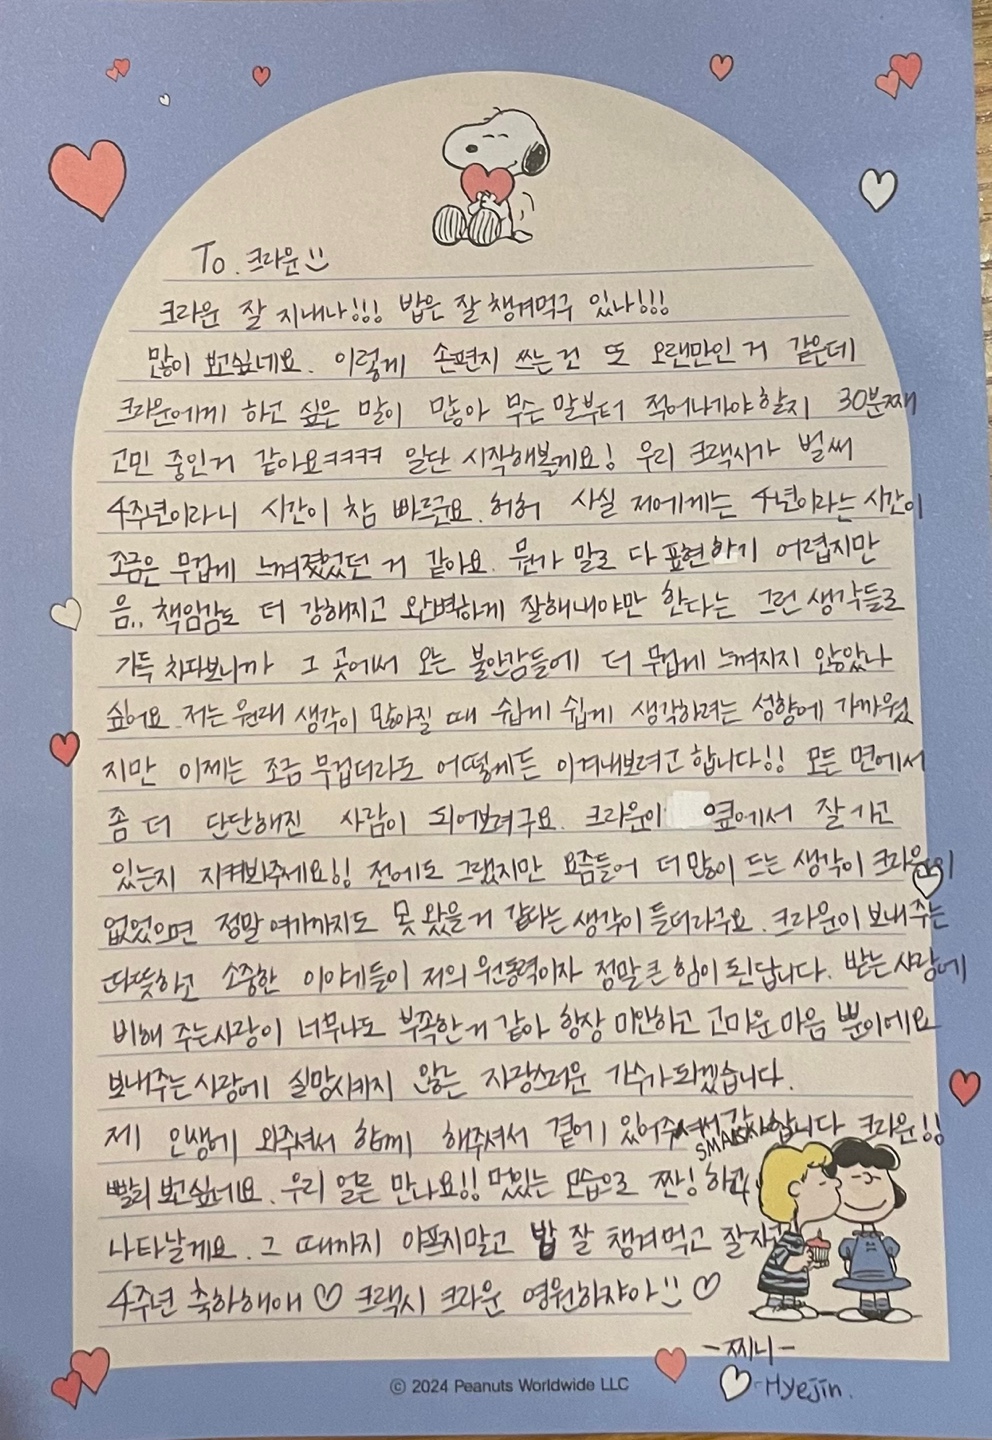 To. 크라운
크라운 잘 지내나!!! 밥은 잘 챙겨먹구 있나!!!
많이 보고싶네요. 이렇게 손편지 쓰는건 또 오랜만인 거 같은데
크라운에게 하고 싶은 말이 많아 무슨 말부터 적어나가야할지 30분째
고민 중인거 같아요ㅋㅋㅋㅋ 일단 시작해볼게요! 우리 크랙시가 벌써
4주년이라니 시간이 참 빠르군요. 허허 사실 저에게는 4년이라는 시간이
조금은 무겁게 느껴졌었던 거 같아요. 뭔가 말로 다 표현하기 어렵지만
음.. 책임감도 더 강해지고 완벽하게 잘해내야만 한다는 그런 생각들로
가득 차다보니까 그 곳에서 오는 불안감들에 더 무겁게 느껴지지 않았나
싶어요. 저는 원래 생각이 많아질 때 쉽게 쉽게 생각하려는 성향에 가까웠
지만 이제는 조금 무겁더라도 어떻게든 이겨내보려고 합니다!! 모든 면에서
좀 더 단단해진 사람이 되어보려구요. 크라운이 옆에서 잘 가고
있는지 지켜봐주세요!! 전에도 그랬지만 요즘들어 더 많이 드는 생각이 크라운이
없었으면 정말 여기까지도 못 왔을거 같다는 생각이 들더라구요. 크라운이 보내주는
따뜻하고 소중한 이야기들이 저의 원동력이자 정말 큰 힘이 된답니다. 받는 사랑에
비해 주는 사랑이 너무나도 부족한거 같아 항상 미안하고 고마운 마음 뿐이에요
보내주는 사랑에 실망시키지 않는 자랑스러운 가수가 되겠습니다.
제 인생에 와주셔서 함께 해주셔서 곁에 있어주셔서 감사합니다 크라운!!
SMACK!
빨리 보고싶네요. 우리 얼른 만나요!! 멋있는 모습으로 짠! 하고
나타날게요. 그 때까지 아프지말고 밥 잘 챙겨먹고 잘자고
4주년 축하해애 ♡ 크랙시 크라운 영원하쟈아 ♡
-찌니-
Hyejin.
© 2024 Peanuts Worldwide LLC